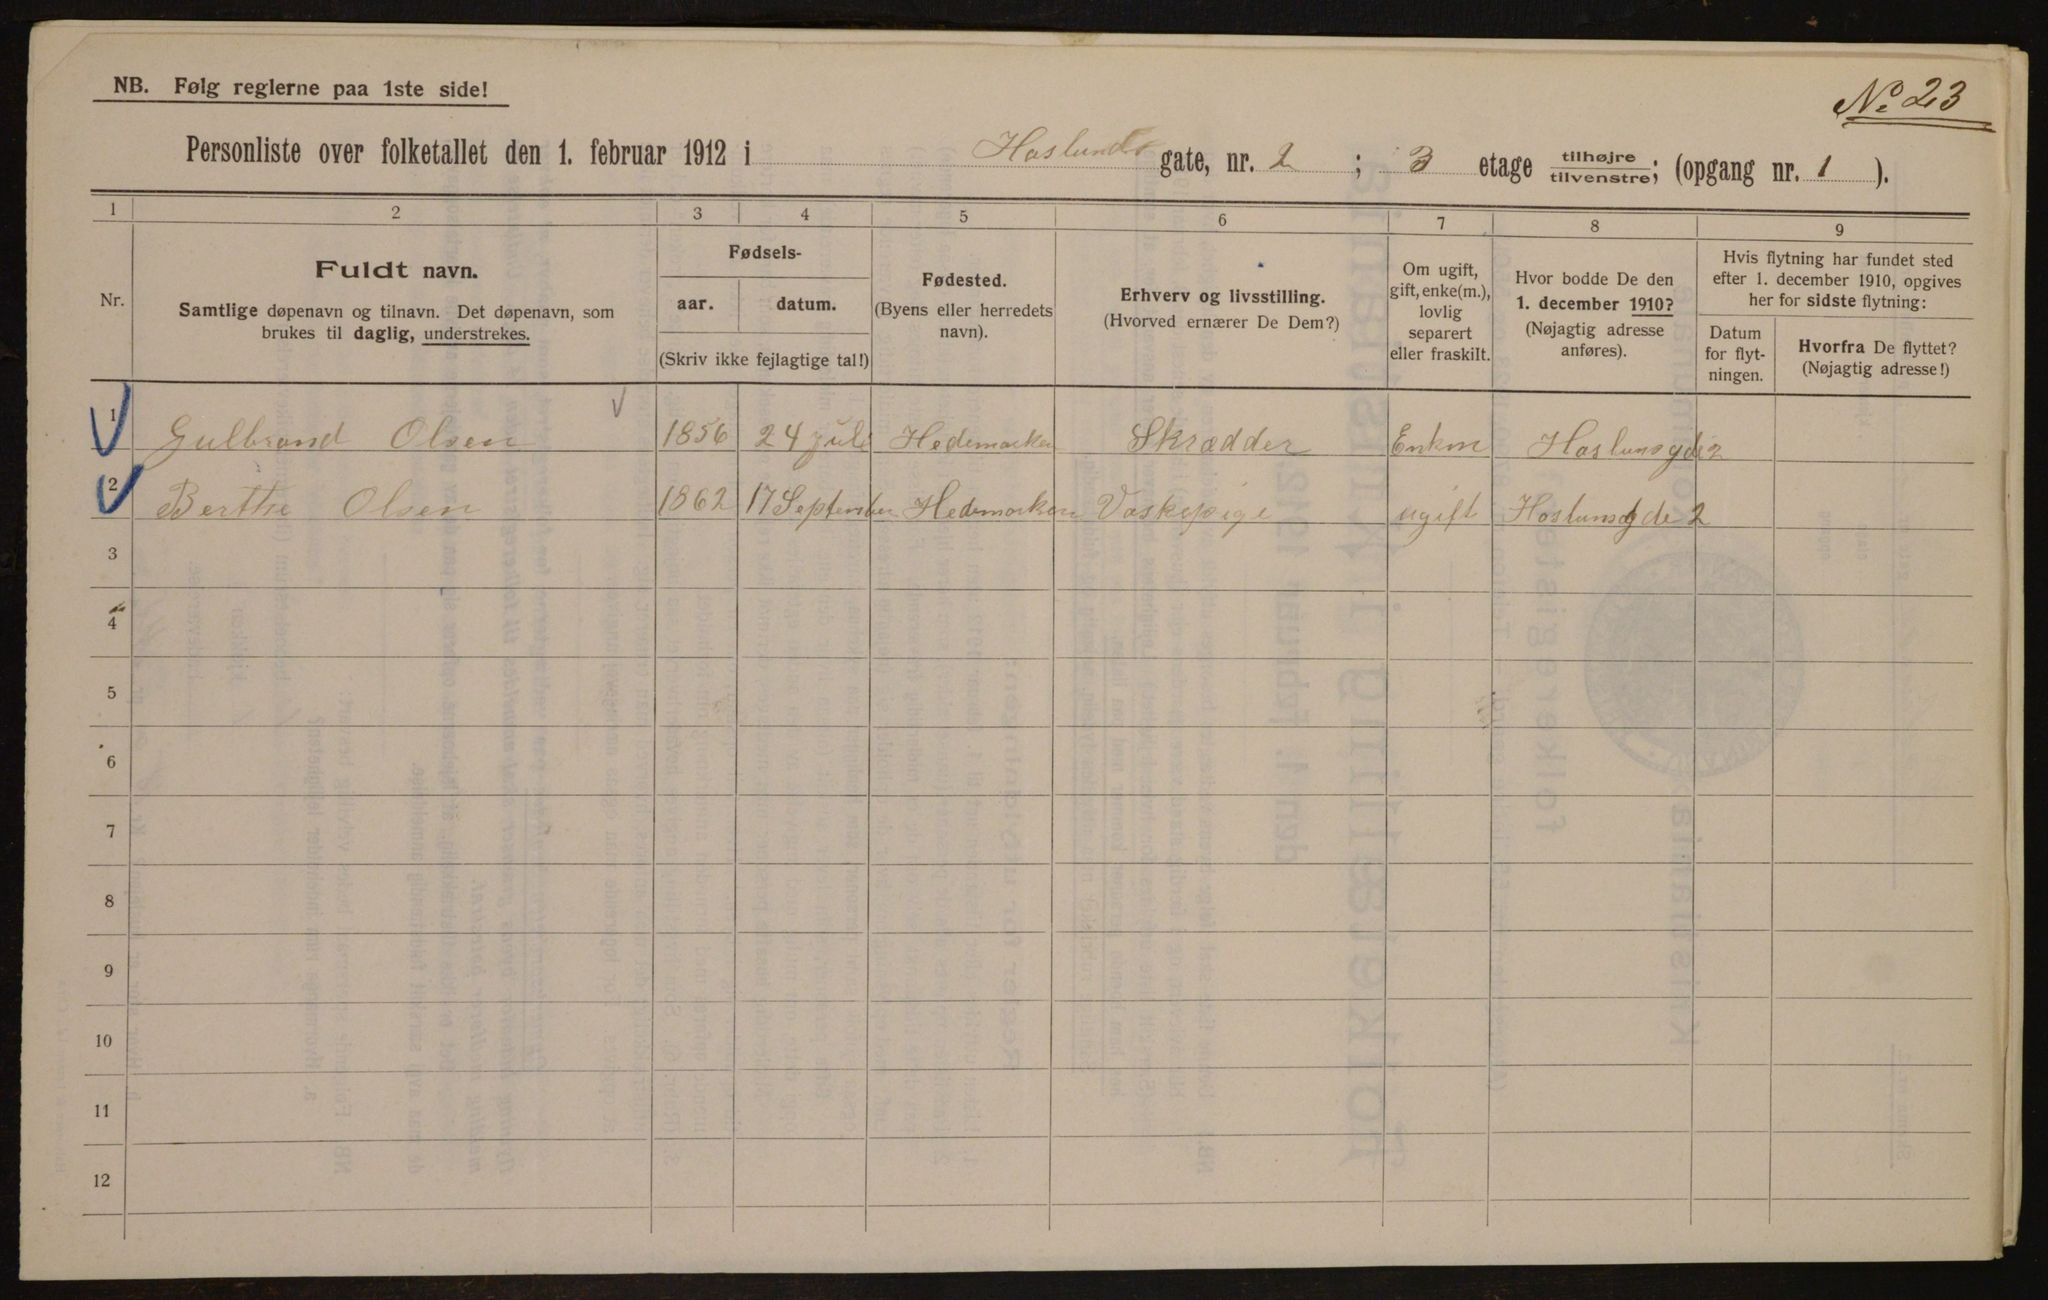 NB. Følg reglerne paa 1ste side!
No. 23
Personliste over folketallet den 1. februar 1912 i Haslunds gate, nr. 2 ; 3 etage tilhøjre / tilvenstre ; (opgang nr. 1 ).
1 2 3 4 5 6 7 8 9
Nr.
Fuldt navn.
Samtlige døpenavn og tilnavn. Det døpenavn, som
brukes til daglig, understrekes.
Fødsels-
aar. datum.
(Skriv ikke fejlagtige tal!)
Fødested.
(Byens eller herredets
navn).
Erhverv og livsstilling.
(Hvorved ernærer De Dem?)
Om ugift,
gift, enke(m.),
lovlig
separert
eller fraskilt.
Hvor bodde De den
1. december 1910?
(Nøjagtig adresse
anføres).
Hvis flytning har fundet sted
efter 1. december 1910, opgives
her for sidste flytning:
Datum
for flyt-
ningen.
Hvorfra De flyttet?
(Nøjagtig adresse!)
1 Gulbrand Olsen 1856 24 juli Hedemarken Skrædder Enkm Haslunsgde 2
2 Berthe Olsen 1862 17 September Hedemarken Vaskepige ugift Haslunsgde 2
3
4
5
6
7
8
9
10
11
12